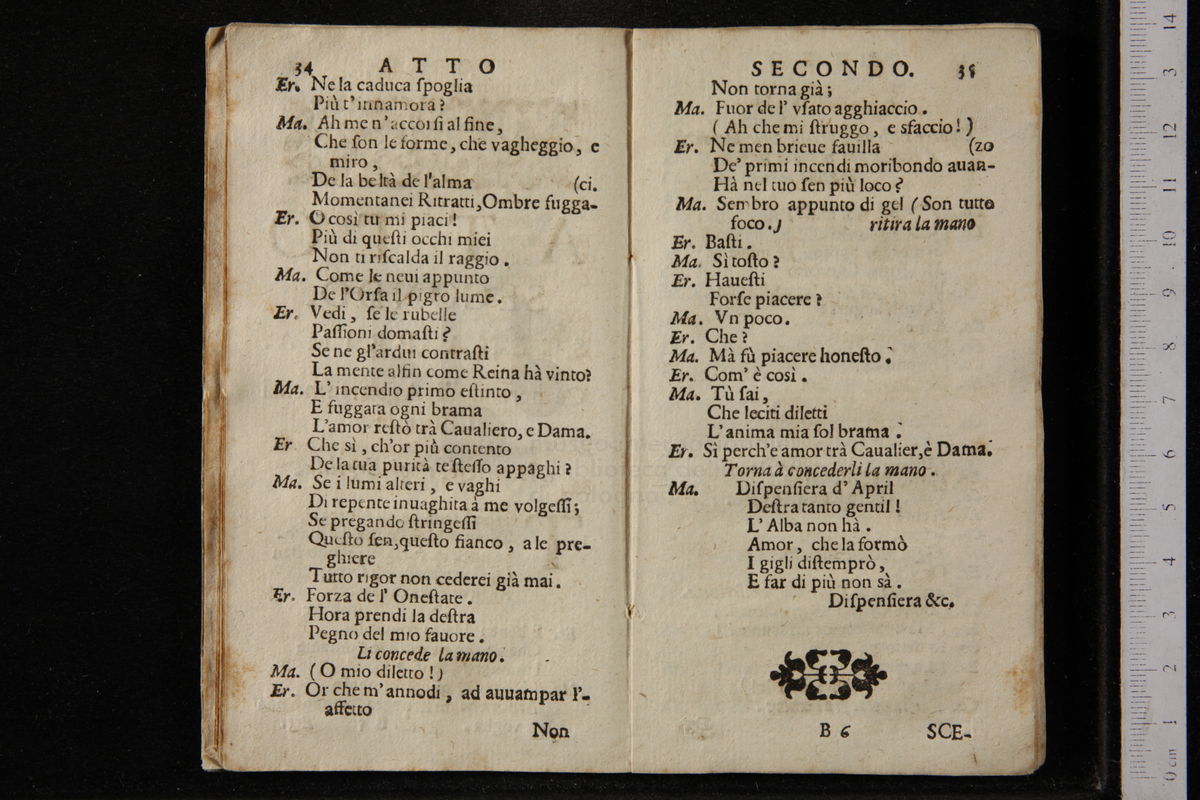 34 ATTO
Er. Ne la caduca ſpoglia
Più t'innamora?
Ma. Ah me n'accorſi al fine,
Che ſon le forme, che vagheggio, e
miro,
De la beltà de l'alma (ci.
Momentanei Ritratti, Ombre fugga-
Er. O così tu mi piaci!
Più di queſti occhi miei
Non ti riſcalda il raggio.
Ma. Come le neui appunto
De l'Orſa il pigro lume.
Er. Vedi, ſe le rubelle
Paſſioni domaſti?
Se ne gl'ardui contraſti
La mente alfin come Reina hà vinto?
Ma. L'incendio primo eſtinto,
E fuggata ogni brama
L'amor reſtò trà Caualiero, e Dama.
Er Che sì, ch'or più contento
De la tua purità te ſteſſo appaghi?
Ma. Se i lumi alteri, e vaghi
Di repente inuaghita à me volgeſſi;
Se pregando ſtringeſſi
Queſto ſen, queſto fianco, a le pre-
ghiere
Tutto rigor non cederei già mai.
Er. Forza de l' Oneſtate.
Hora prendi la deſtra
Pegno del mio fauore.
Li concede la mano.
Ma. (O mio diletto!)
Er. Or che m'annodi, ad auuampar l'-
affetto
Non
SECONDO. 35
Non torna già;
Ma. Fuor de l' vſato agghiaccio.
(Ah che mi ſtruggo, e sfaccio!)
Er. Ne men brieue fauilla (zo
De' primi incendi moribondo auan-
Hà nel tuo ſen più loco?
Ma. Sembro appunto di gel (Son tutto
foco.) ritira la mano
Er. Baſti.
Ma. Sì toſto?
Er. Haueſti
Forſe piacere?
Ma. Vn poco.
Er. Che?
Ma. Mà fù piacere honeſto.
Er. Com' è così.
Ma. Tù ſai,
Che leciti diletti
L'anima mia ſol brama.
Er. Sì perch'e amor trà Caualier, è Dama.
Torna à concederli la mano.
Ma. Diſpenſiera d'April
Deſtra tanto gentil!
L'Alba non hà.
Amor, che la formò
I gigli diſtemprò,
E far di più non sà.
Diſpenſiera &c.
B 6 SCE-
0 cm 1 2 3 4 5 6 7 8 9 10 11 12 13 14